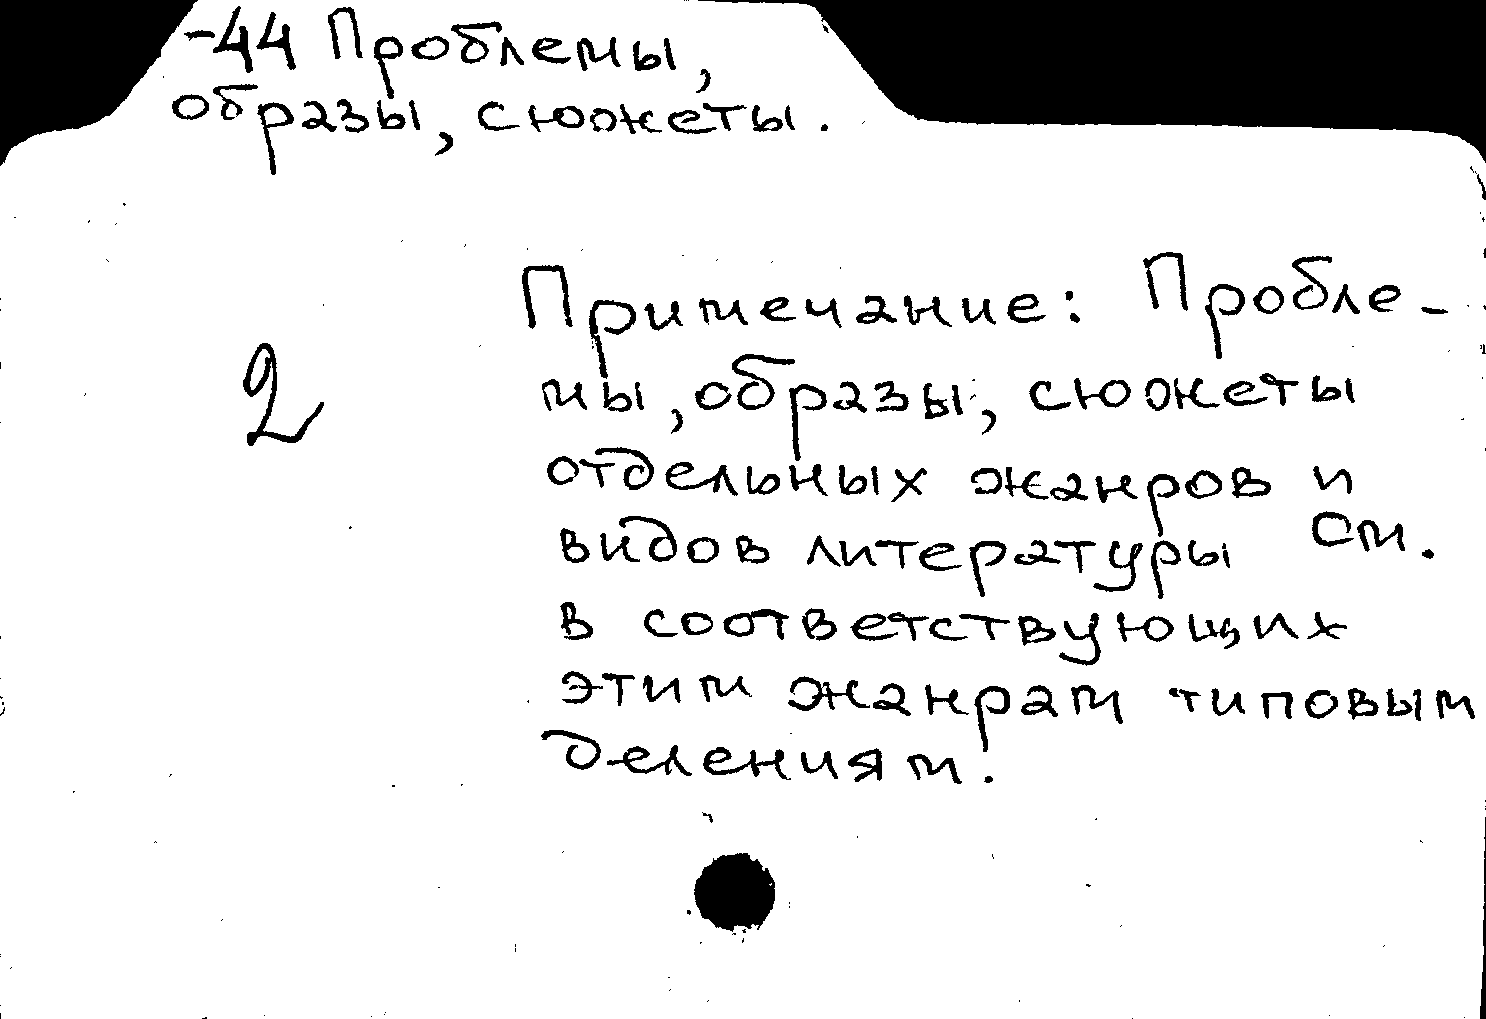 -44 Проблемы,
образы, сюжеты.
Примечание: Пробле-
мы, образы, сюжеты
2
отдельных жанров и
видов литературы См.
в соответствующих
этим жанрам типовым
делениям.